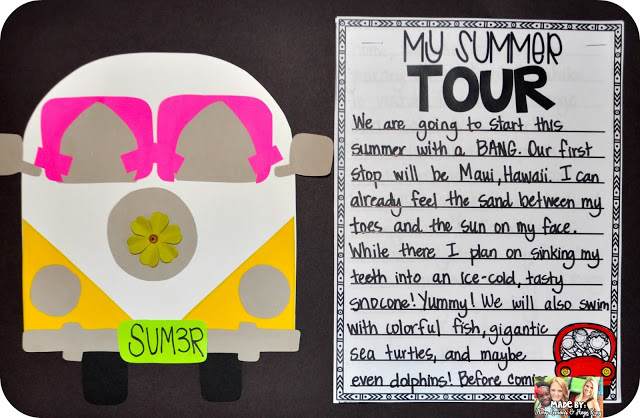 SUM3R
MY SUMMER
TOUR
We are going to start this
summer with a BANG. Our first
stop will be Maui, Hawaii. I can
already feel the sand between my
toes and the sun on my face.
While there I plan on sinking my
teeth into an ice-cold, tasty
snocone! Yummy! We will also swim
with colorful fish, gigantic
sea turtles, and maybe
even dolphins! Before
MADE BY: